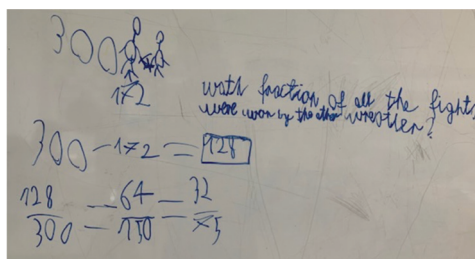 300
172
wath fraction of all the fights
were won by the other wrestler?
300 - 172 = 128
128/300 = 64/150 = 32/75